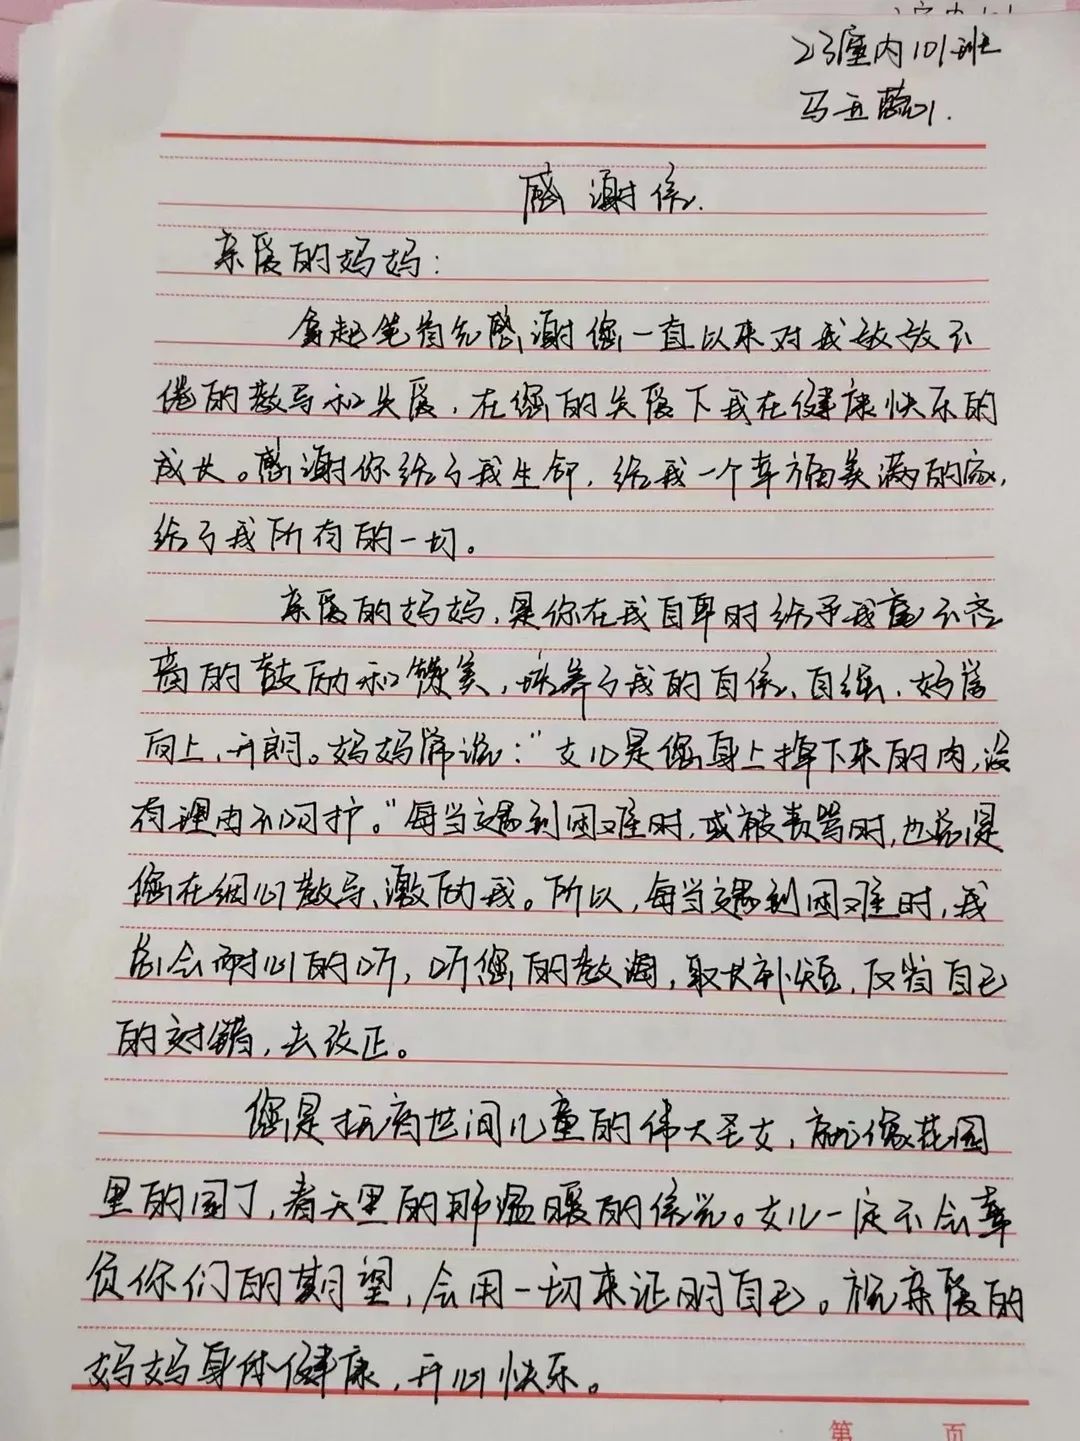 23室内101班
马玉蕊
感谢信
亲爱的妈妈:
拿起笔首先感谢您一直以来对我孜孜不
倦的教导和关爱,在您的关爱下我在健康快乐的
成长。感谢你给了我生命,给我一个幸福美满的家,
给了我所有的一切。
亲爱的妈妈,是你在我自卑时给予我毫不吝
啬的鼓励和赞美,培养了我的自信、自强、好学
向上、开朗。妈妈常说:“女儿是您身上掉下来的肉,没
有理由不呵护。”每当遇到困难时,或被责骂时,也总是
您在细心教导、激励我。所以,每当遇到困难时,我
总会耐心的听,听您的教诲,取长补短,反省自己
的对错,去改正。
您是抚育世间儿童的伟大圣女,就像花园
里的园丁,春天里的那温暖的
女儿一定不会辜
负你们的期望,会用一切来证明自己。祝亲爱的
妈妈身体健康,开心快乐。
第 页